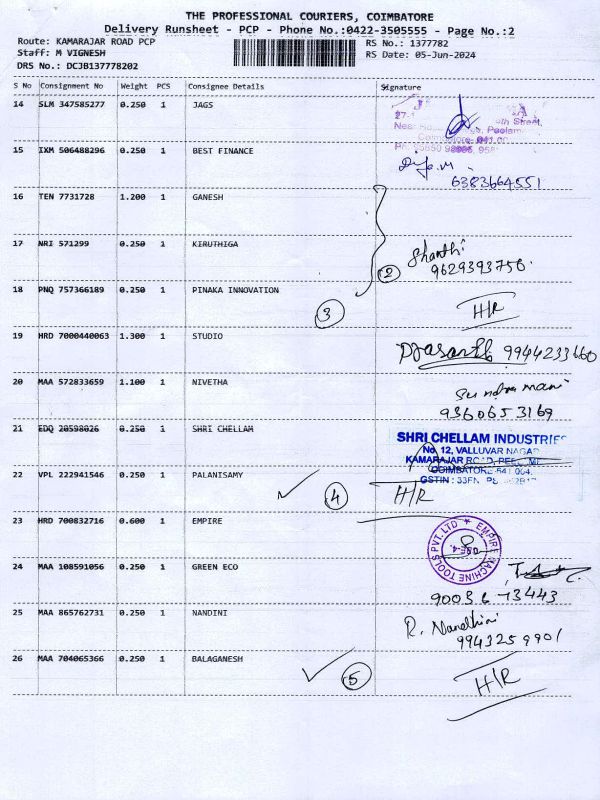 THE PROFESSIONAL COURIERS, COIMBATORE
Delivery Runsheet - PCP - Phone No.:0422-3505555 - Page No.:2
Route: KAMARAJAR ROAD PCP
RS No.: 1377782
Staff: M VIGNESH
RS Date: 05-Jun-2024
DRS No.: DCJB137778202
S No Consignment No Weight PCS Consignee Details Signature
14 SLM 347585277 0.250 1 JAGS
15 IXM 506488296 0.250 1 BEST FINANCE
6383664551
16 TEN 7731728 1.200 1 GANESH
17 NRI 571299 0.250 1 KIRUTHIGA
Shanthi
2 9629393756
18 PNQ 757366189 0.250 1 PINAKA INNOVATION
3 H/R
19 HRD 7000440063 1.300 1 STUDIO
Prasanth 9944233660
20 MAA 572833659 1.100 1 NIVETHA
9360653169
21 EDQ 20598026 0.250 1 SHRI CHELLAM
SHRI CHELLAM INDUSTRIES
No. 12, VALLUVAR NAGAR
KAMARAJAR ROAD,
COIMBATORE-641 004.
GSTIN : 33
22 VPL 222941546 0.250 1 PALANISAMY
4 H/R
23 HRD 700832716 0.600 1 EMPIRE
EMPIRE MACHINE TOOLS PVT. LTD
24 MAA 108591056 0.250 1 GREEN ECO
25 MAA 865762731 0.250 1 NANDINI
R. Nandhini
9943259901
26 MAA 704065366 0.250 1 BALAGANESH
5 H/R